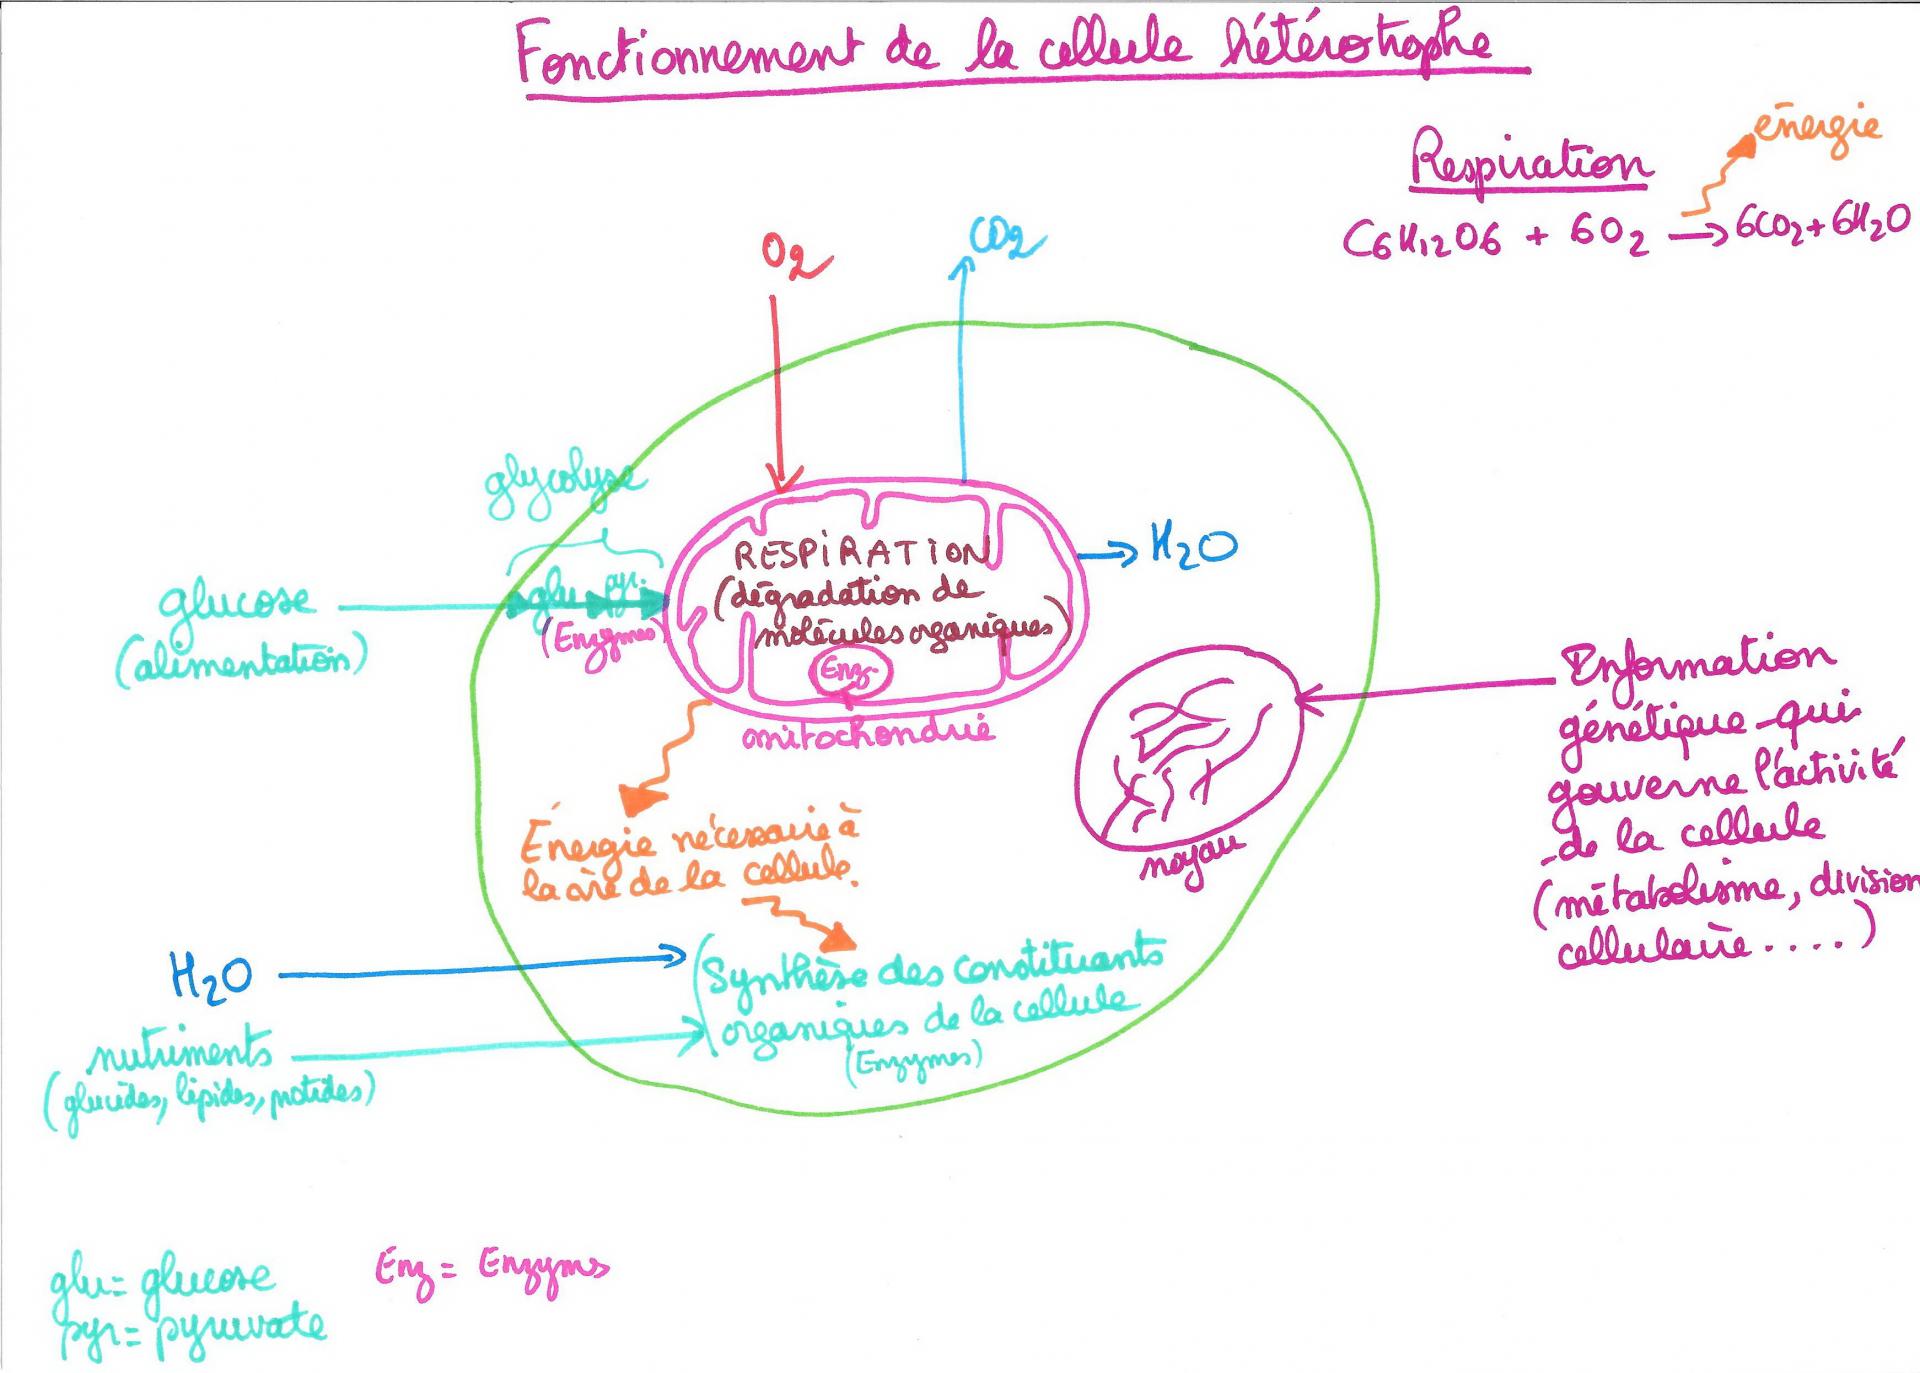 Fonctionnement de la cellule hétérotrophe
énergie
Respiration
C6H12O6 + 6O2 → 6CO2 + 6H2O
O2
CO2
glycolyse
glucose
(alimentation)
glu
pyr.
(Enzymes)
RESPIRATION
(dégradation de
molécules organiques)
Enz.
mitochondrie
H2O
Information
génétique qui
gouverne l'activité
de la cellule
(métabolisme, division
cellulaire....)
noyau
Énergie nécessaire à
la vie de la cellule.
H2O
nutriments
(glucides, lipides, protides)
Synthèse des constituants
organiques de la cellule
(Enzymes)
glu = glucose
pyr = pyruvate
Enz = Enzymes